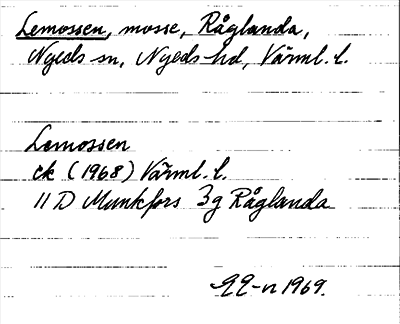 Lemossen, mosse, Råglanda,
Nyeds sn, Nyeds hd, Värml. l.
Lemossen
ek (1968) Värml. l.
11 D Munkfors 3g Råglanda
1969.